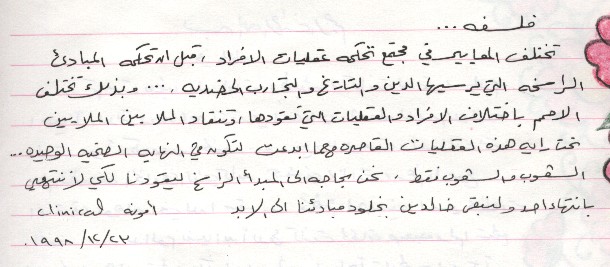 فلسفه ...
تختلف المعايير في مجتمع تحكمه عقليات الافراد ، قبل ان تحكمه المبادئ
الراسخه التي يرسيها الدين والتاريخ والتجارب الحضريه .... وبذلك تختلف
الامم باختلاف الافراد والعقليات التي تقودها ، وتنقاد الملايين الملايين
تحت رايه هذه العقليات القاصره مهما ابدعت لتكون في النهايه الضحيه الوحيده ...
الشعوب والشعوب فقط ، نحن بحاجه الى المبدأ الراسخ ليقودنا لكي لا ننتهي
بانتهاء احد ولنبقى خالدين بخلود مبادئنا الى الابد أمونه clinical
١٩٩٨/١٢/٢٣.